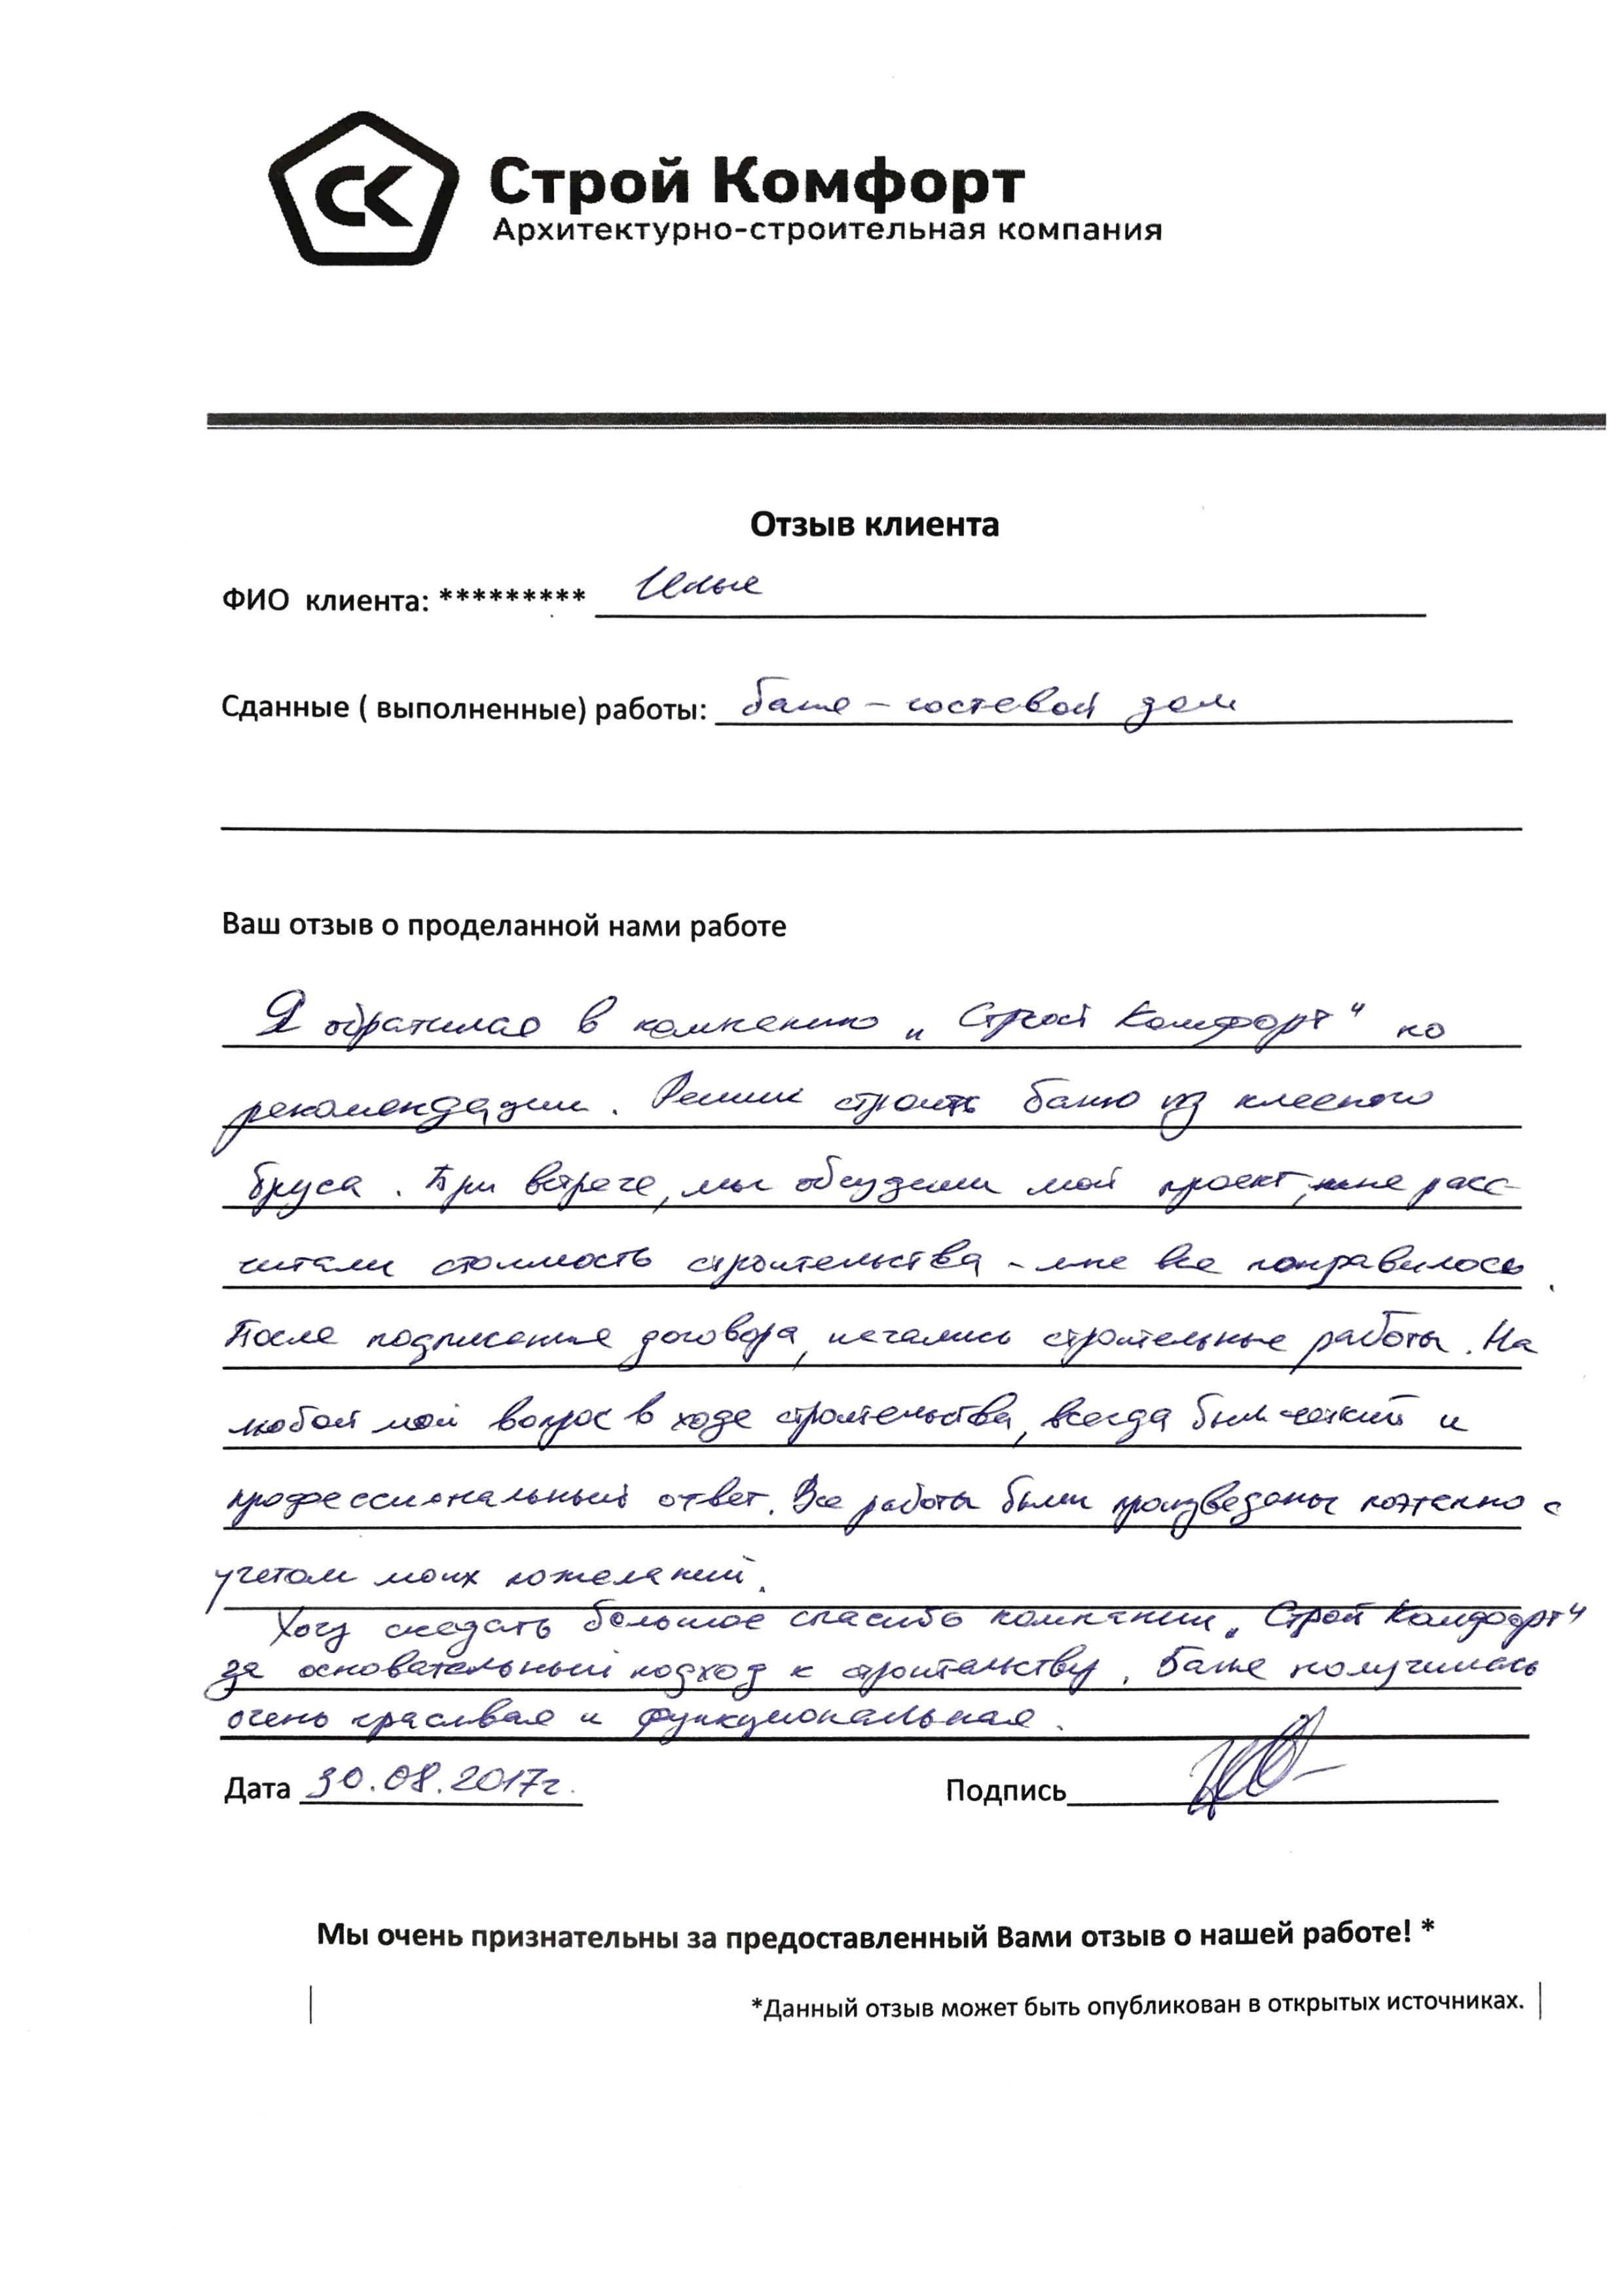 СК
Строй Комфорт
Архитектурно-строительная компания
Отзыв клиента
ФИО клиента: ********* Илья
Сданные ( выполненные) работы: баня – гостевой дом
Ваш отзыв о проделанной нами работе
Я обратился в компанию „Строй Комфорт“ по
рекомендации. Решил строить баню из клееного
бруса. При встрече, мы обсудили мой проект, мне расс-
читали стоимость строительства – мне все понравилось.
После подписания договора, начались строительные работы. На
любой мой вопрос в ходе строительства, всегда был четкий и
профессиональный ответ. Все работы были произведены поэтапно с
учетом моих пожеланий.
Хочу сказать большое спасибо компании „Строй Комфорт“
за основательный подход к строительству. Баня получилась
очень красивая и функциональная.
Дата 30.08.2017г. Подпись
Мы очень признательны за предоставленный Вами отзыв о нашей работе! *
*Данный отзыв может быть опубликован в открытых источниках.